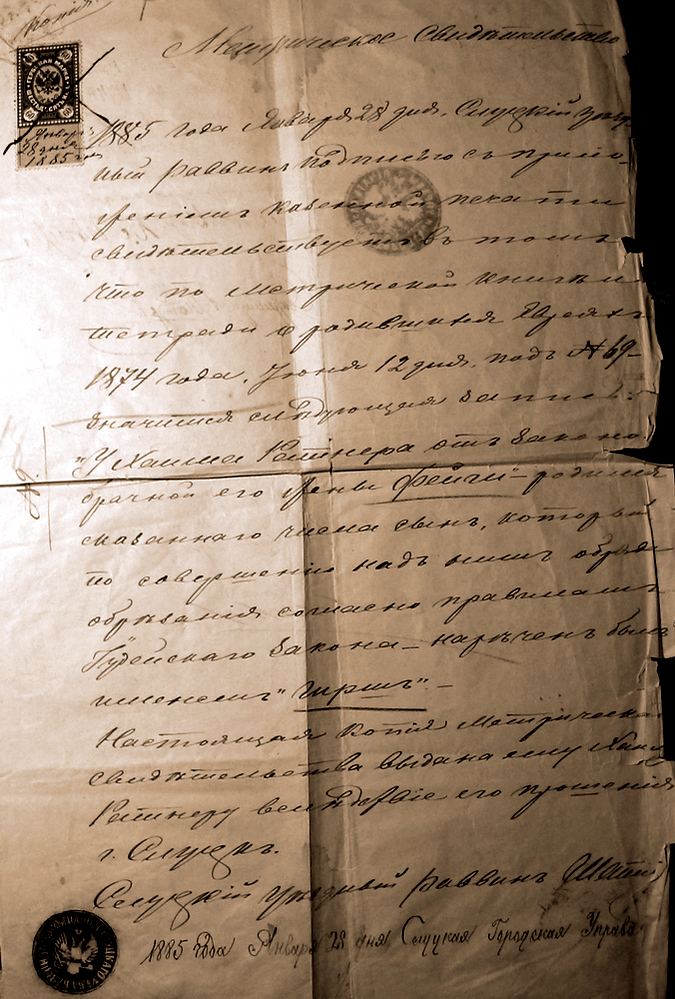 Копія
60 60
60 60
Января
28 дня
1885 года
Метрическое Свидѣтельство
1885 года Января 28 дня. Слуцкій уѣзд
ный раввинъ подписью съ прило
женіемъ казенной печати
свидѣтельствуетъ въ томъ
что по метрической книгѣ и
тетради о родившихся Евреяхъ
1874 года, Іюня 12 дня, подъ № 69
значится слѣдующая запись:
"У Хаима отъ законо
брачной его жены Фейги" родился
сказаннаго числа сынъ, который
по совершеніи надъ нимъ обряда
обрѣзанія согласно правиламъ
Іудейскаго Закона нареченъ былъ
именемъ "Гиршъ".
Настоящая копія Метрическа
свидѣтельства выдана ему Хаи
вслѣдствіе его прошенія
г. Слуцкъ.
Слуцкій уѣздный раввинъ
1885 года Января 28 дня Слуцкая Городская Управа